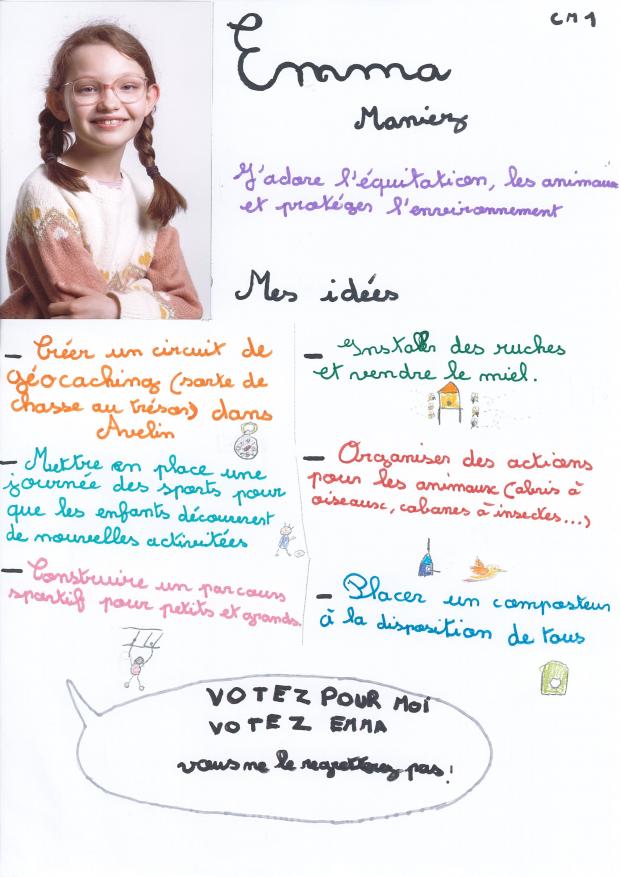 CM1
Emma
Maniez
J'adore l'équitation, les animaux
et protéger l'environnement
Mes idées
- Créer un circuit de
géocaching (sorte de
chasse au trésor) dans
Avelin
- Mettre en place une
journée des sports pour
que les enfants découvrent
de nouvelles activitées
- Construire un parcours
sportif pour petits et grands.
- Installer des ruches
et vendre le miel.
- Organiser des actions
pour les animaux (abris à
oiseaux, cabanes à insectes...)
- Placer un composteur
à la disposition de tous
VOTEZ POUR MOI
VOTEZ EMMA
vous ne le regretterez pas!